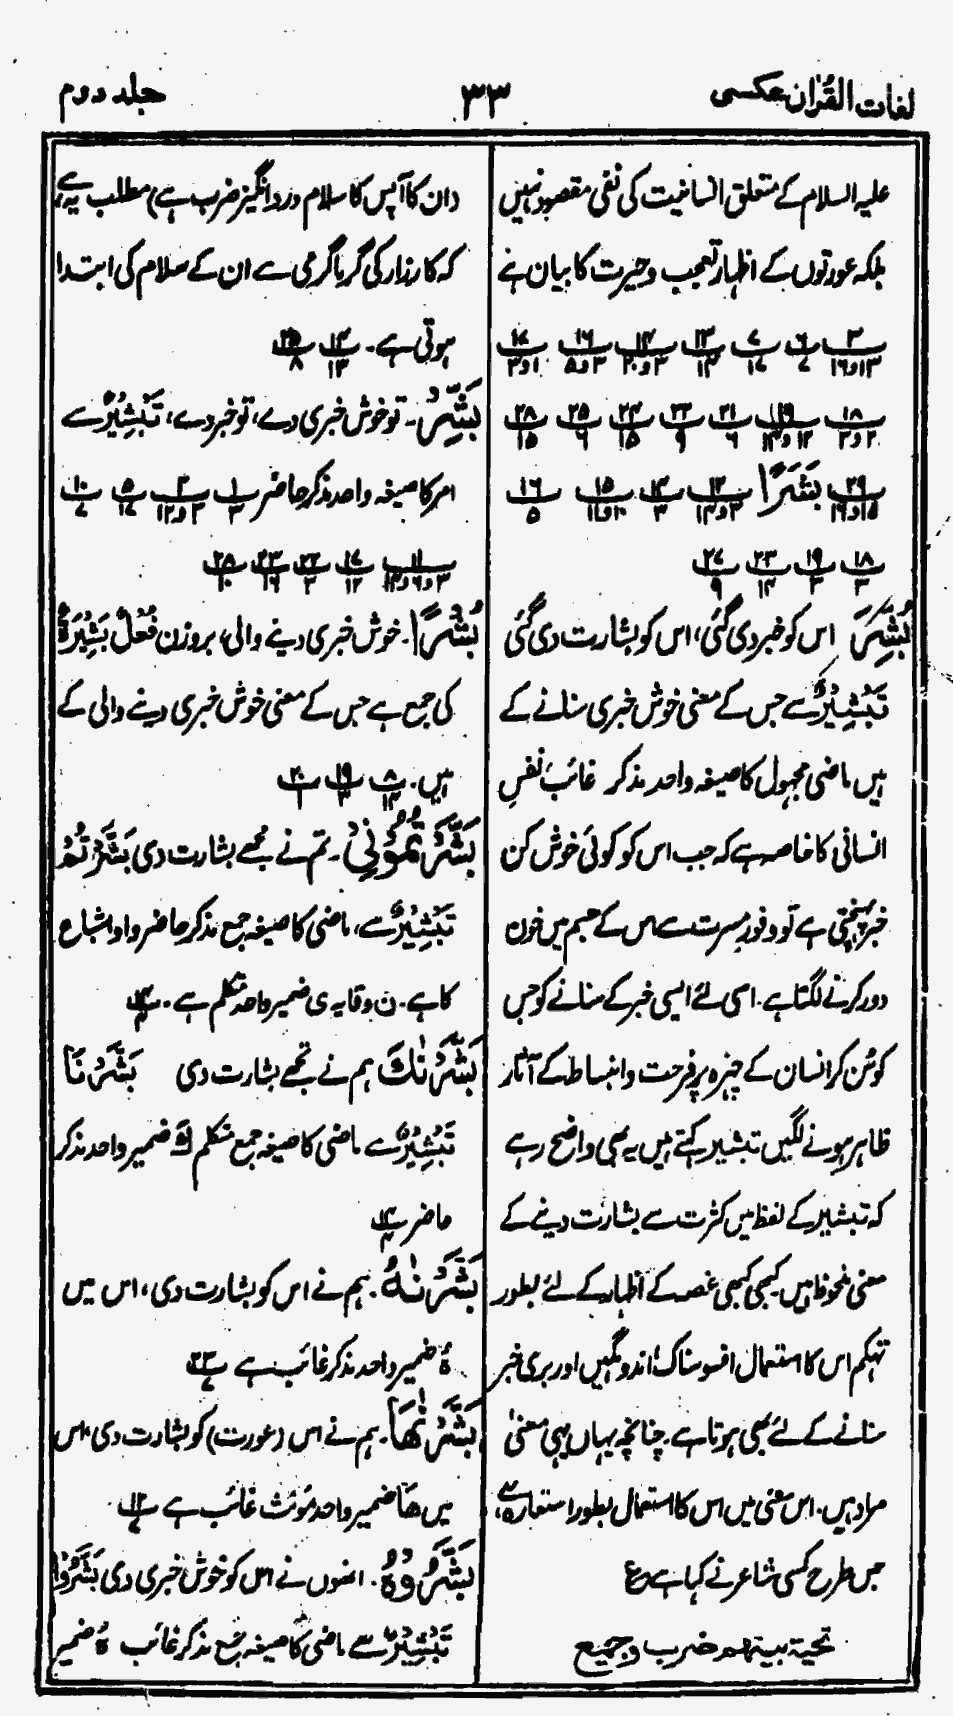 لغات القرآن عکسی
۳۳
جلد دوم
علیہ السلام کے متعلق انسانیت کی نفی مقصود نہیں
بلکہ عورتوں کے اظہار تعجب و حیرت کا بیان ہے
پ۳ ۱۳و۱۶ پ۶ ۷ پ۷ ۱۷ پ۱۳ ۱۴ پ۱۴ ۳و۲۰ پ۱۶ ۳و۵ پ۱۷ ۱و۳
پ۱۸ ۲و۳ پ۱۹ ۱۲و۱۴ پ۲۱ ۶ پ۲۲ ۹ پ۲۴ ۱۵ پ۲۵ ۶ پ۲۸ ۱۵
پ۲۹ ۱۵و۱۶ بَشَرًا پ۱۲ ۳و۱۴ پ۱۴ ۳ پ۱۵ ۱۰و۱۱ پ۱۶ ۵
پ۱۸ ۳ پ۱۹ ۳ پ۲۳ ۱۴ پ۲۷ ۹
بُشِّرَ اس کو خبر دی گئی، اس کو بشارت دی گئی
تَبْشِیْرٌ سے جس کے معنی خوش خبری سنانے کے
ہیں ماضی مجہول کا صیغہ واحد مذکر غائب، نفسِ
انسانی کا خاصہ ہے کہ جب اس کو کوئی خوش کن
خبر پہنچتی ہے تو وفورِ مسرت سے اس کے جسم میں خون
دور کرنے لگتا ہے۔ اسی لئے ایسی خبر کے سنانے کو جس
کو سُن کر انسان کے چہرہ پر فرحت و انبساط کے آثار
ظاہر ہونے لگیں تبشیر کہتے ہیں یہ بھی واضح رہے
کہ تبشیر کے لفظ میں کثرت سے بشارت دینے کے
معنی ملحوظ ہیں۔ کبھی کبھی غصہ کے اظہار کے لئے بطور
تہکم اس کا استعمال افسوسناک، اندوہگیں اور بری خبر
سنانے کے لئے بھی ہوتا ہے۔ چنانچہ یہاں یہی معنیٰ
مراد ہیں۔ اس معنی میں اس کا استعمال بطور استعارہ ہے،
جس طرح کسی شاعر نے کہا ہے ع
تحیۃ بینھم ضرب وجیع
(ان کا آپس کا سلام درد انگیز ضرب ہے) مطلب یہ ہے
کہ کارزار کی گرما گرمی سے ان کے سلام کی ابتدا
ہوتی ہے۔ پ۱۴ ۱۳ پ۲۵ ۸
بَشِّرْ۔ تو خوش خبری دے، تو خبر دے، تَبْشِیْرٌ سے
امر کا صیغہ واحد مذکر حاضر پ۱ ۳ پ۲ ۳و۱۲ پ۵ ۱۷ پ۱۰ ۷
پ۱۱ ۳و۶و۱۴ پ۱۷ ۱۲ پ۲۲ ۳ پ۲۳ ۱۶ پ۲۸ ۱۰
بُشْرًا۔ خوش خبری دینے والی، بروزن فُعْلٌ بَشِیْرَۃٌ
کی جمع ہے جس کے معنی خوش خبری دینے والی کے
ہیں۔ پ۸ ۱۴ پ۱۹ ۳ پ۲۰ ۱
بَشَّرْتُمُوْنِیْ۔ تم نے مجھے بشارت دی بَشَّرْتُمْ
تَبْشِیْرٌ سے، ماضی کا صیغہ جمع مذکر حاضر واو اشباع
کا ہے۔ ن وقایہ ی ضمیر واحد متکلم ہے۔ پ۱۴ ۴
بَشَّرْنٰكَ ہم نے تجھے بشارت دی بَشَّرْنَا
تَبْشِیْرٌ سے ماضی کا صیغہ جمع متکلم كَ ضمیر واحد مذکر
حاضر پ۱۴ ۴
بَشَّرْنٰهُ۔ ہم نے اس کو بشارت دی، اس میں
هُ ضمیر واحد مذکر غائب ہے پ۲۳ ۷
بَشَّرْنٰهَا۔ ہم نے اس (عورت) کو بشارت دی، اس
میں هَا ضمیر واحد مؤنث غائب ہے پ۱۲ ۷
بَشَّرُوْهُ۔ انھوں نے اس کو خوش خبری دی بَشَّرُوْا
تَبْشِیْرٌ سے ماضی کا صیغہ جمع مذکر غائب هُ ضمیر